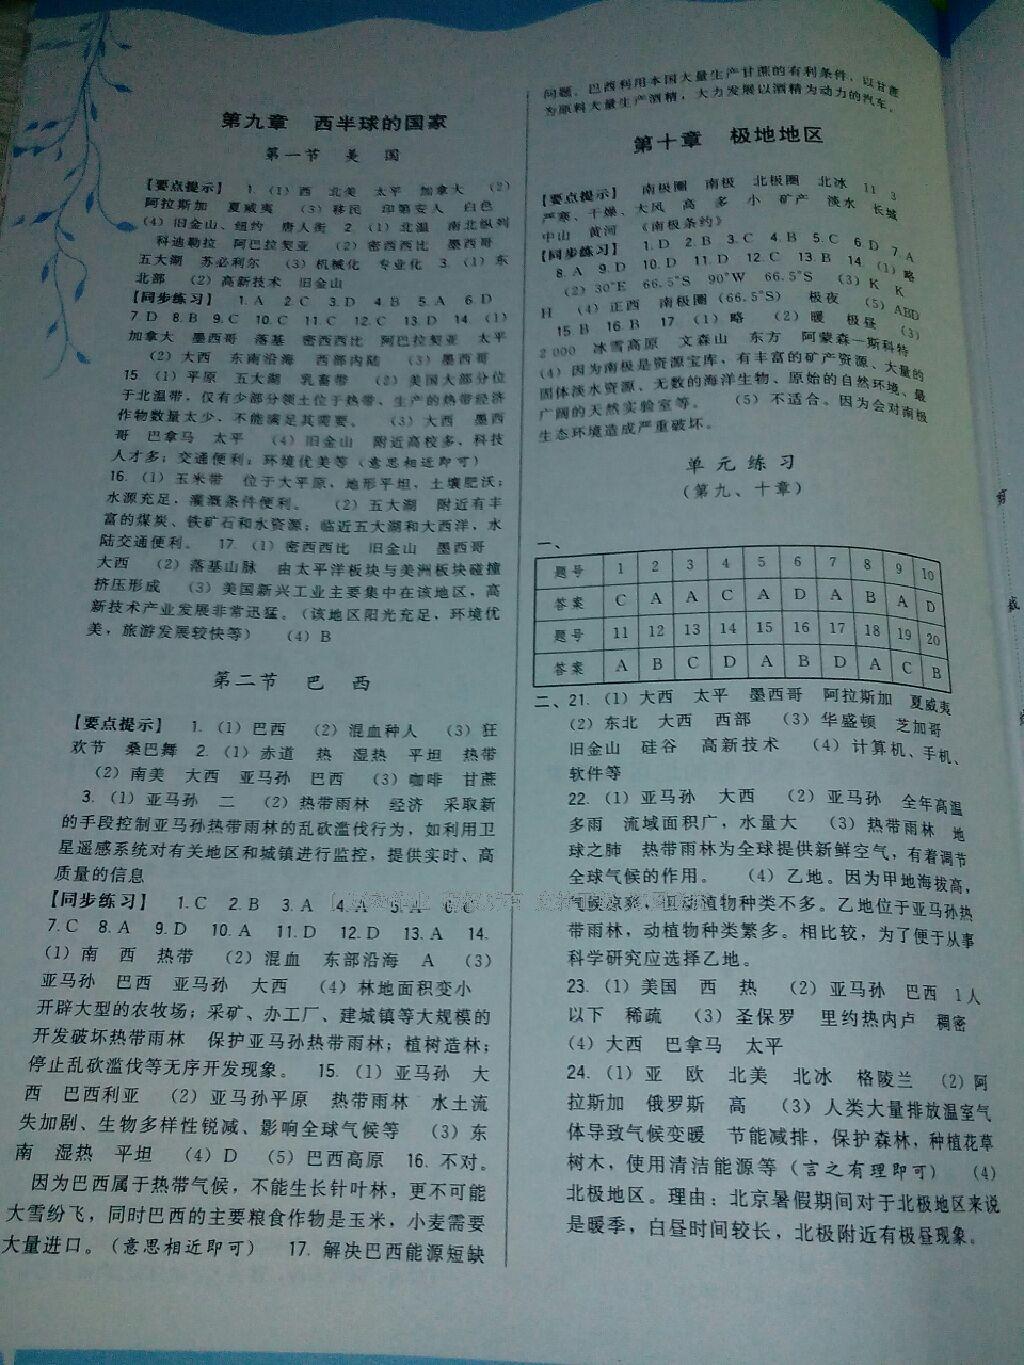 第九章 西半球的国家
第一节 美 国
【要点提示】 1. (1) 西 北美 太平 加拿大 (2)
阿拉斯加 夏威夷 (3) 移民 印第安人 白色
(4) 旧金山、纽约 唐人街 2. (1) 北温 南北纵列
科迪勒拉 阿巴拉契亚 (2) 密西西比 墨西哥
五大湖 苏必利尔 (3) 机械化 专业化 3. (1) 东
北部 (2) 高新技术 旧金山
【同步练习】 1. A 2. C 3. D 4. B 5. A 6. D
7. D 8. B 9. C 10. C 11. C 12. C 13. D 14. (1)
加拿大 墨西哥 落基 密西西比 阿巴拉契亚 太平
(2) 大西 东南沿海 西部内陆 (3) 墨西哥
15. (1) 平原 五大湖 乳畜带 (2) 美国大部分位
于北温带，仅有少部分领土位于热带、生产的热带经济
作物数量太少、不能满足其需要。 (3) 大西 墨西
哥 巴拿马 太平 (4) 旧金山 附近高校多、科技
人才多；交通便利；环境优美等（意思相近即可）
16. (1) 玉米带 位于大平原，地形平坦，土壤肥沃；
水源充足，灌溉条件便利。 (2) 五大湖 附近有丰
富的煤炭、铁矿石和水资源；临近五大湖和大西洋，水
陆交通便利。 17. (1) 密西西比 旧金山 墨西哥
大西 (2) 落基山脉 由太平洋板块与美洲板块碰撞
挤压形成 (3) 美国新兴工业主要集中在该地区，高
新技术产业发展非常迅猛。（该地区阳光充足，环境优
美，旅游发展较快等） (4) B
第二节 巴 西
【要点提示】 1. (1) 巴西 (2) 混血种人 (3) 狂
欢节 桑巴舞 2. (1) 赤道 热 湿热 平坦 热带
(2) 南美 大西 亚马孙 巴西 (3) 咖啡 甘蔗
3. (1) 亚马孙 二 (2) 热带雨林 经济 采取新
的手段控制亚马孙热带雨林的乱砍滥伐行为，如利用卫
星遥感系统对有关地区和城镇进行监控，提供实时、高
质量的信息
【同步练习】 1. C 2. B 3. A 4. A 5. A 6. C
7. C 8. A 9. D 10. A 11. D 12. D 13. A 14.
(1) 南 西 热带 (2) 混血 东部沿海 A (3)
亚马孙 巴西 亚马孙 大西 (4) 林地面积变小
开辟大型的农牧场；采矿、办工厂、建城镇等大规模的
开发破坏热带雨林 保护亚马孙热带雨林；植树造林；
停止乱砍滥伐等无序开发现象。 15. (1) 亚马孙 大
西 巴西利亚 (2) 亚马孙平原 热带雨林 水土流
失加剧、生物多样性锐减、影响全球气候等 (3) 东
南 湿热 平坦 (4) D (5) 巴西高原 16. 不对。
因为巴西属于热带气候，不能生长针叶林，更不可能
大雪纷飞，同时巴西的主要粮食作物是玉米，小麦需要
大量进口。（意思相近即可） 17. 解决巴西能源短缺
问题，巴西利用本国大量生产甘蔗的有利条件，以甘蔗
为原料大量生产酒精，大力发展以酒精为动力的汽车。
第十章 极地地区
【要点提示】 南极圈 南极 北极圈 北冰 11 3
严寒、干燥、大风 高 多 小 矿产 淡水 长城
中山 黄河 《南极条约》
【同步练习】 1. D 2. B 3. C 4. B 5. C 6. D 7. A
8. A 9. D 10. D 11. D 12. C 13. B 14. (1) 略
(2) 30°E 66.5°S 90°W 66.5°S (3) K K
H (4) 正西 南极圈 (66.5°S) 极夜 (5) ABD
15. B 16. B 17. (1) 略 (2) 暖 极昼 (3)
2 000 冰雪高原 文森山 东方 阿蒙森—斯科特
(4) 因为南极是资源宝库，有丰富的矿产资源、大量的
固体淡水资源、无数的海洋生物、原始的自然环境、最
广阔的天然实验室等。 (5) 不适合。因为会对南极
生态环境造成严重破坏。
单元练习
（第九、十章）
一、
题号 1 2 3 4 5 6 7 8 9 10
答案 C A A C A D A B A D
题号 11 12 13 14 15 16 17 18 19 20
答案 A B C D A B D A C B
二、21. (1) 大西 太平 墨西哥 阿拉斯加 夏威夷
(2) 东北 大西 西部 (3) 华盛顿 芝加哥
旧金山 硅谷 高新技术 (4) 计算机、手机、
软件等
22. (1) 亚马孙 大西 (2) 亚马孙 全年高温
多雨 流域面积广，水量大 (3) 热带雨林 地
球之肺 热带雨林为全球提供新鲜空气，有着调节
全球气候的作用。 (4) 乙地。因为甲地海拔高，
气候凉爽，但动植物种类不多。乙地位于亚马孙热
带雨林，动植物种类繁多。相比较，为了便于从事
科学研究应选择乙地。
23. (1) 美国 西 热 (2) 亚马孙 巴西 1人
以下 稀疏 (3) 圣保罗 里约热内卢 稠密
(4) 大西 巴拿马 太平
24. (1) 亚 欧 北美 北冰 格陵兰 (2) 阿
拉斯加 俄罗斯 高 (3) 人类大量排放温室气
体导致气候变暖 节能减排，保护森林，种植花草
树木，使用清洁能源等（言之有理即可） (4)
北极地区。理由：北京暑假期间对于北极地区来说
是暖季，白昼时间较长，北极附近有极昼现象。